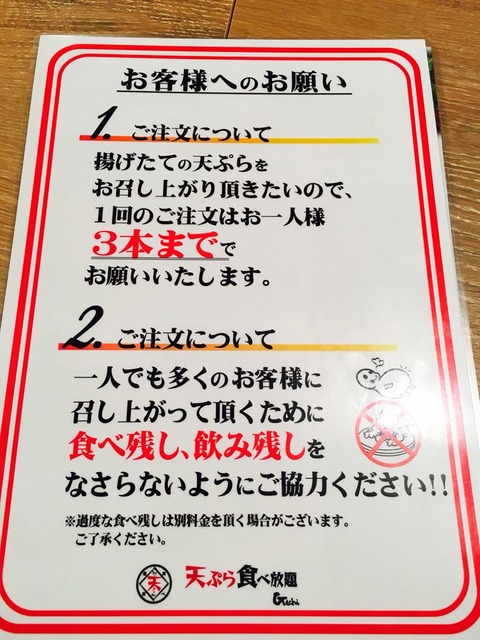 お客様へのお願い
1. ご注文について
揚げたての天ぷらを
お召し上がり頂きたいので、
1回のご注文はお一人様
3本までで
お願いいたします。
2. ご注文について
一人でも多くのお客様に
召し上がって頂くために
食べ残し、飲み残しを
なさらないようにご協力ください!!
※過度な食べ残しは別料金を頂く場合がございます。
ご了承ください。
天ぷら食べ放題